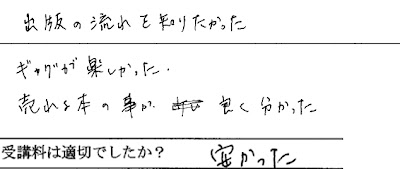 出版の流れを知りたかった
ギャグが楽しかった.
売れる本の事が 良く分かった
受講料は適切でしたか? 安かった